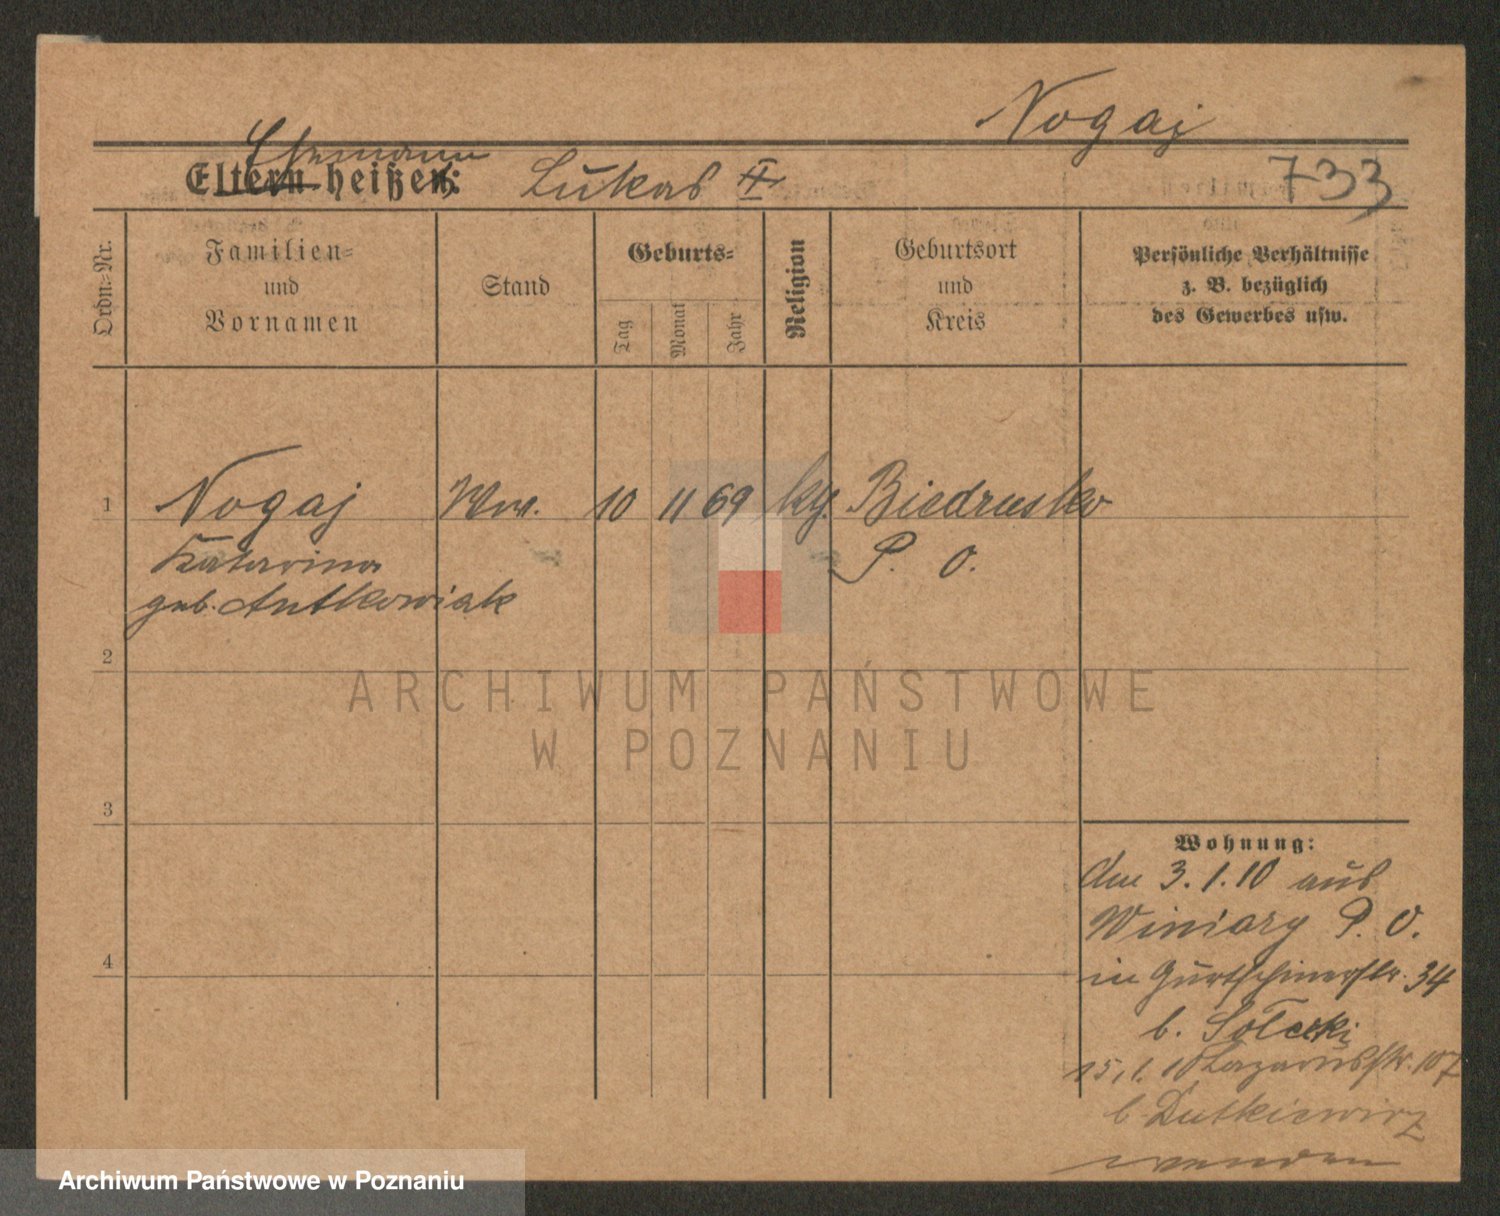 Nogaj
Ehemann
Eltern heißen: Lukas II
733
Ordn.-Nr.
Familien-
und
Vornamen
Stand
Geburts-
Tag
Monat
Jahr
Religion
Geburtsort
und
Kreis
Persönliche Verhältnisse
z. B. bezüglich
des Gewerbes usw.
1 Nogaj Ww. 10 11 69 kg. Biedrusko
Katarina P. O.
geb. Antkowiak
2
ARCHIWUM PAŃSTWOWE
W POZNANIU
3
Wohnung:
den 3.1.10 aus
Winiary P. O.
4
in Gurtschinerstr. 34
b. Solecki
15.1.10 Lazarusstr. 107
b. Dutkiewicz
wenden
Archiwum Państwowe w Poznaniu